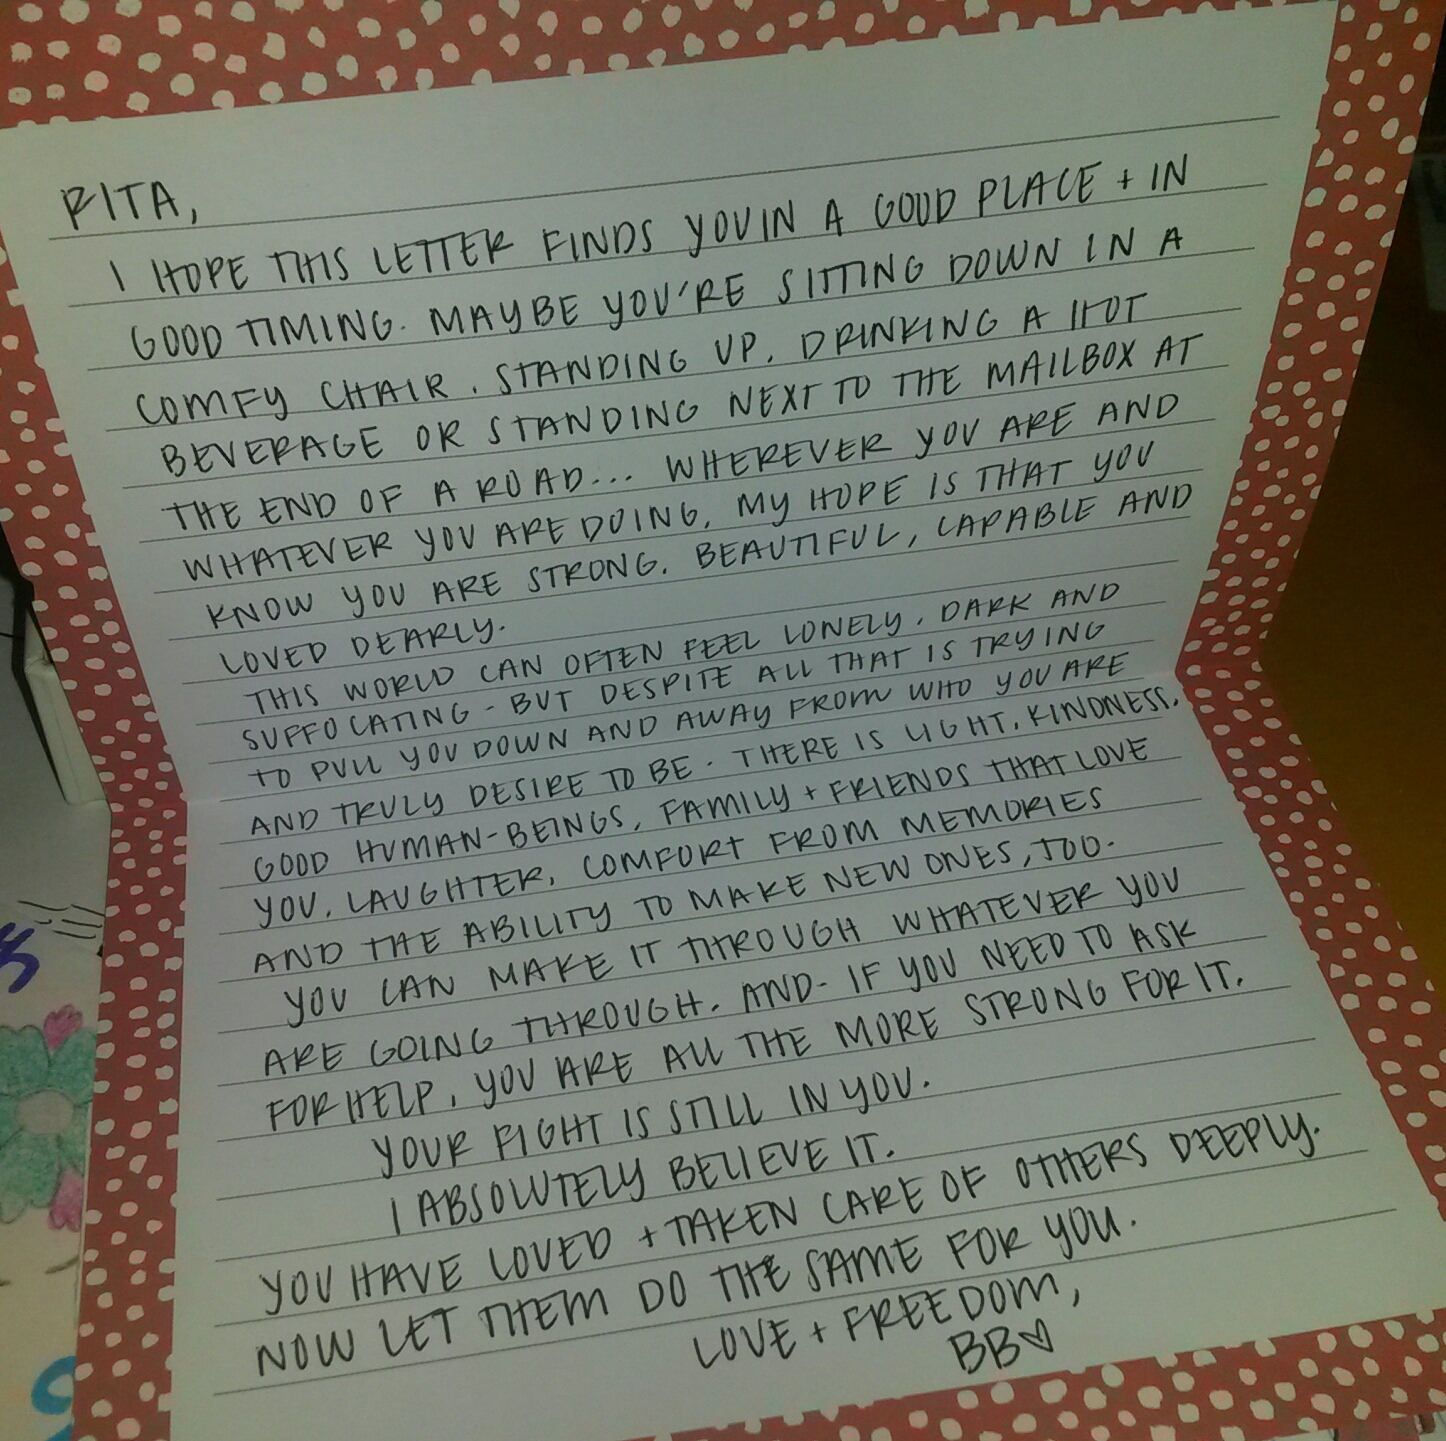 RITA,
I HOPE THIS LETTER FINDS YOU IN A GOOD PLACE + IN
GOOD TIMING. MAYBE YOU'RE SITTING DOWN IN A
COMFY CHAIR, STANDING UP, DRINKING A HOT
BEVERAGE OR STANDING NEXT TO THE MAILBOX AT
THE END OF A ROAD... WHEREVER YOU ARE AND
WHATEVER YOU ARE DOING, MY HOPE IS THAT YOU
KNOW YOU ARE STRONG, BEAUTIFUL, CAPABLE AND
LOVED DEARLY.
THIS WORLD CAN OFTEN FEEL LONELY, DARK AND
SUFFOCATING - BUT DESPITE ALL THAT IS TRYING
TO PULL YOU DOWN AND AWAY FROM WHO YOU ARE
AND TRULY DESIRE TO BE. THERE IS LIGHT, KINDNESS,
GOOD HUMAN-BEINGS, FAMILY + FRIENDS THAT LOVE
YOU, LAUGHTER, COMFORT FROM MEMORIES
AND THE ABILITY TO MAKE NEW ONES, TOO.
YOU CAN MAKE IT THROUGH WHATEVER YOU
ARE GOING THROUGH. AND - IF YOU NEED TO ASK
FOR HELP, YOU ARE ALL THE MORE STRONG FOR IT.
YOUR FIGHT IS STILL IN YOU.
I ABSOLUTELY BELIEVE IT.
YOU HAVE LOVED + TAKEN CARE OF OTHERS DEEPLY.
NOW LET THEM DO THE SAME FOR YOU.
LOVE + FREEDOM,
BB♡